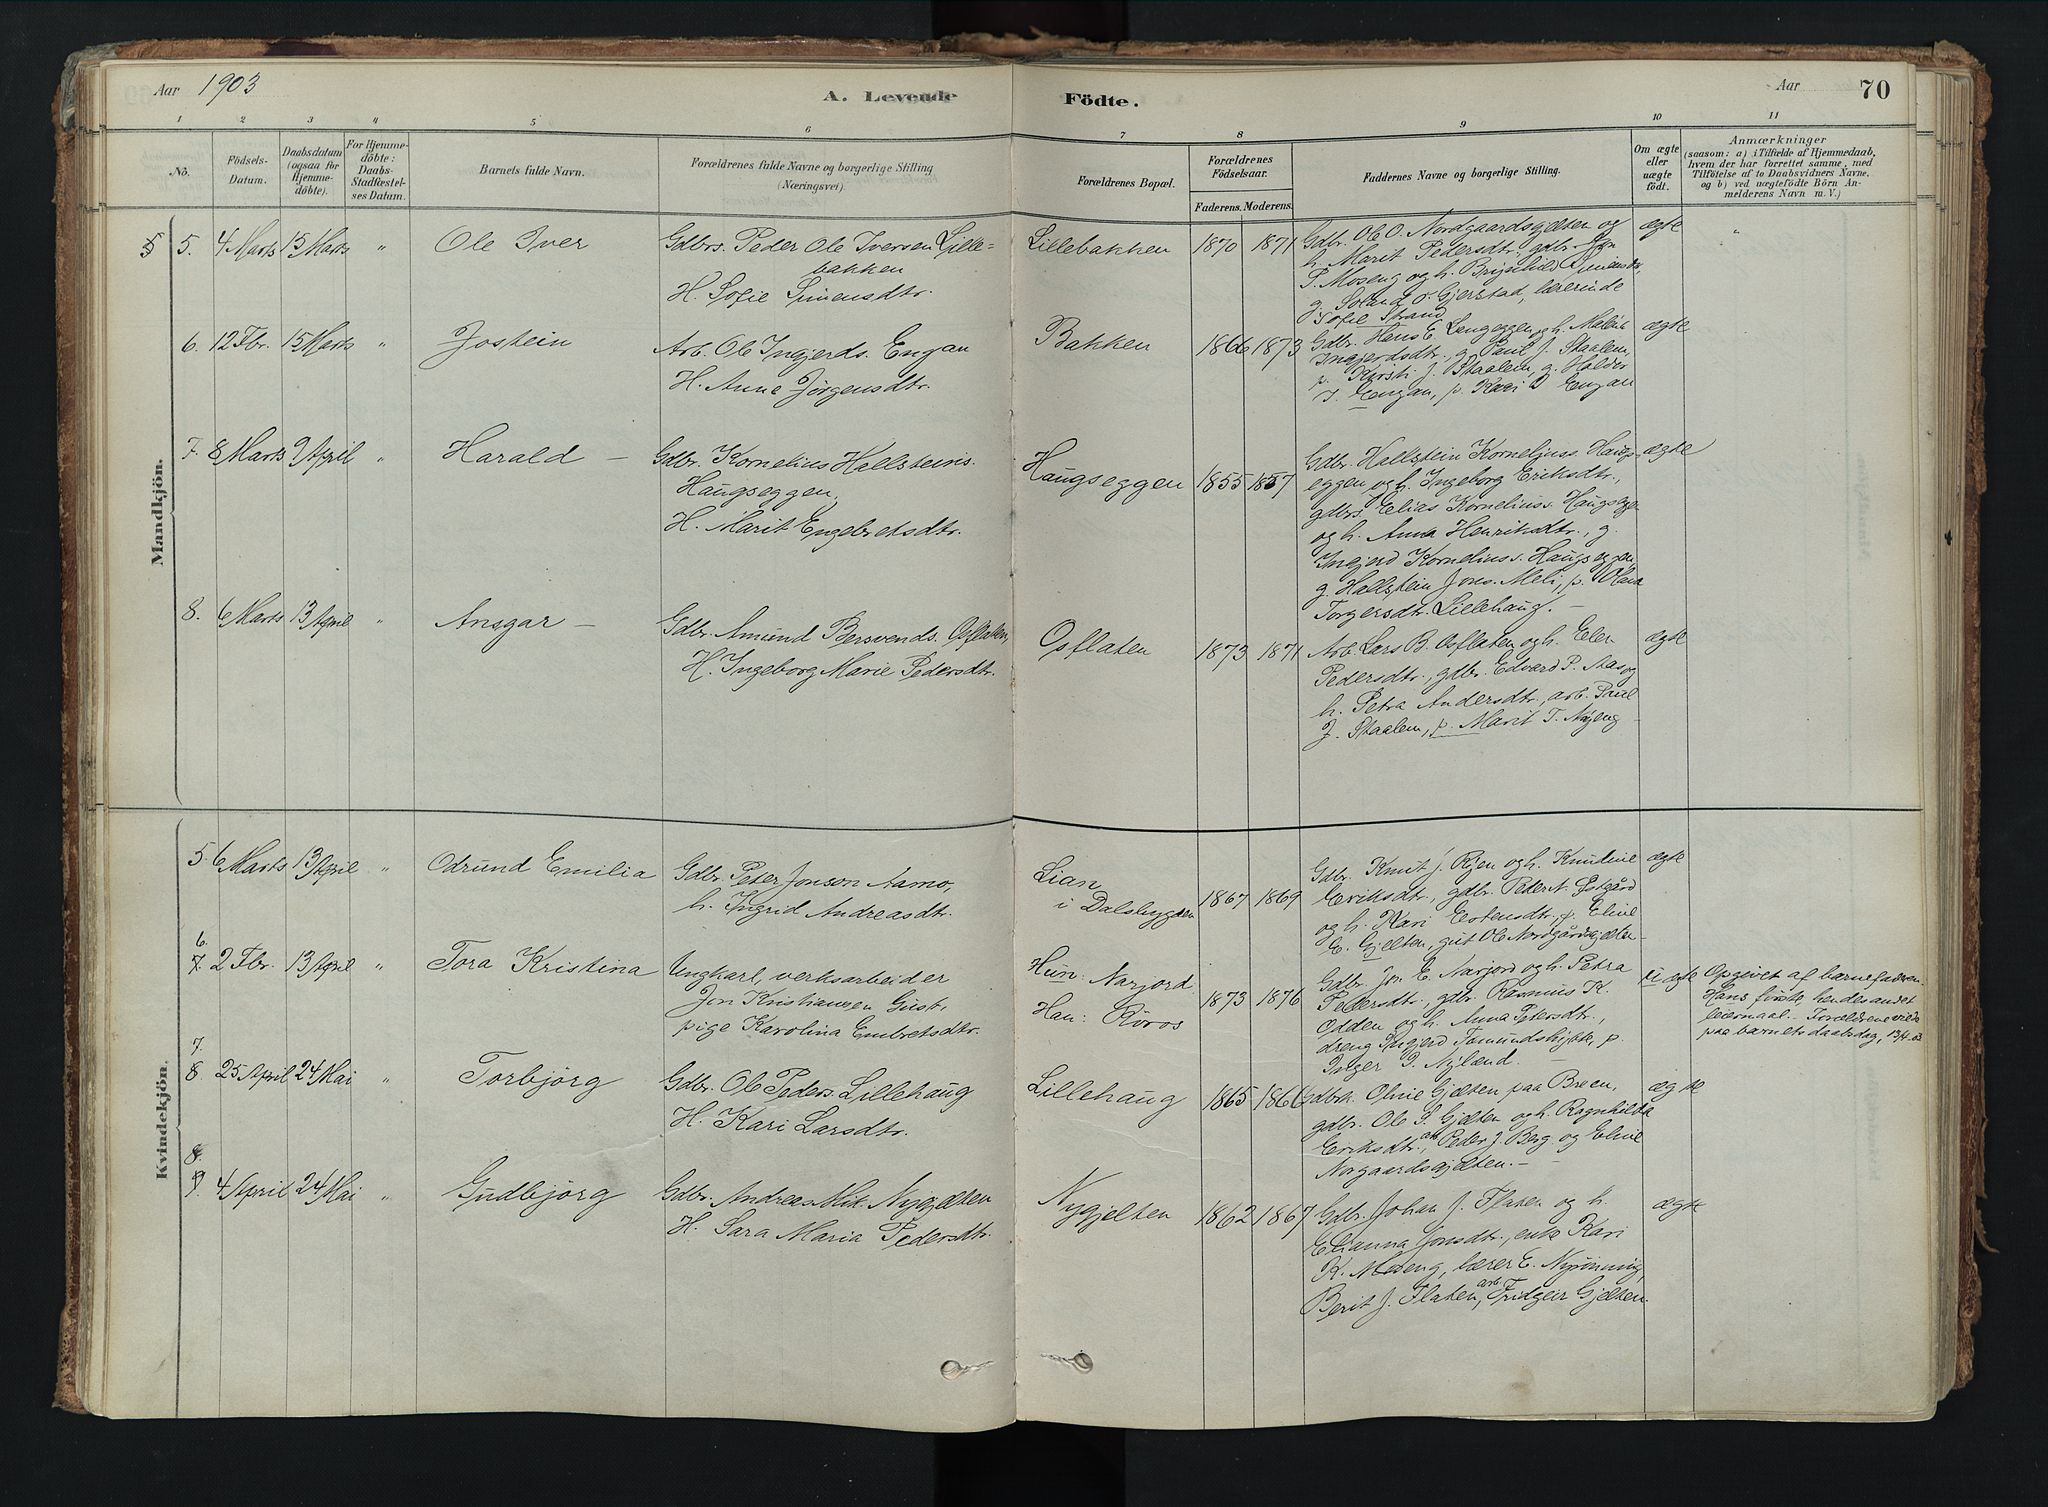 Aar 1903
A. Levende Födte.
Aar 70
1 2 3 4 5 6 7 8 9 10 11
Nö.
Födsels-
Datum.
Daabsdatum
(ogsaa for
Hjemme-
döbte).
For Hjemme-
döbte:
Daabs-
Stadfæstel-
ses Datum.
Barnets fulde Navn.
Forældrenes fulde Navne og borgerlige Stilling
(Næringsvei).
Forældrenes Bopæl.
Forældrenes
Födselsaar.
Faderens. Moderens.
Faddernes Navne og borgerlige Stilling.
Om ægte
eller
uægte
født.
Anmærkninger
(saasom: a) i Tilfælde af Hjemmedaab,
hvem der har forrettet samme, med
Tilföielse af to Daabsvidners Navne,
og b) ved uægtefödte Börn An-
melderens Navn m. V.)
Mandkjön.
5. 4 Marts 15 Marts " Ole Iver
Gdbrs. Peder Ole Iversen Lille-
bakken
H. Sofie Simensdtr.
Lillebakken 1870 1871
Gdbr. Ole O. Nordgaardsgjelten og
h. Marit Pedersdtr., gdbr. Jon
P. Moseng og h. Brynhild
g. O. Gjerstad, lærerinde
Sofie Strand
ægte "
6. 12 Fbr. 15 Marts " Jostein
Arb. Ole Ingjerds. Engan
H. Anne Jørgensdtr.
Bakken 1866 1873
Gdbr. Hans E. Langeggen og h. Malena
Ingjerdsdtr., g. Paul J. Staalem,
p. Kirsti J. Staalem, g. Haldor
I. Engan, p. Kari I. Engan
ægte
7. 8 Marts 9 April " Harald –
Gdbr. Kornelius Hallsteins.
Haugseggen,
H. Marit Engebretsdtr.
Haugseggen 1855 1857
Gdbr. Hallstein Korneliuss. Haugs-
eggen og h. Ingeborg Eriksdtr.,
gdbrs. Elias Korneliuss. Haugsegge
og h. Anna Henriksdtr., g.
Ingjerd Korneliuss. Haugseggen,
g. Hallstein Jons. Meli, p.
Torgersdtr. Lillehaug. –
ægte
8. 6 Marts 13 April " Ansgar –
Gdbr. Amund Bersvends. Osflaten,
H. Ingeborg Marie Pedersdtr.
Osflaten 1873 1871
Arb. Lars B. Osflaten og h. Elen
Pedersdtr., gdbr. Edvard P. Aas og
h. Petra Andersdtr., arb. Paul
J. Staalem, p. Marit T. Nyeng –
ægte
Kvindekjön.
5. 6 Marts 13 April " Odrund Emilia
Gdbr. Peter Jonson Aamo,
h. Ingrid Andreasdtr.
Lian
i Dalsbygden 1867 1869
Gdbr. Knut J. Ryen og h. Knudine
Eriksdtr., gdbr. Peder N. Østgård
og h. Kari Estensdtr., p. Eline
E. Gjelten, gut Ole Nordgårdsgjelten
ægte
6.
7. 2 Fbr. 13 April " Tora Kristina
Ungkarl, verksarbeider
Jon Kristiansen Gust,
pige Karolina Embretsdtr.
Hun: Narjord
Han: Röros
1873 1876
Gdbr. Jon E. Narjord og h. Petra
Pedersdtr., gdbr. Rasmus K.
Odden og h. Anna Petersdtr.,
dreng Ingjerd Tamundshykke, p.
Inger P. Nyland.
uægte
Opgivet af barnefaderen.
Hans første, hendes andet
leiermaal. – Forældrene viede
paa barnets daabsdag, 13/4 03
7.
8 25 April 24 Mai " Torbjörg
Gdbr. Ole Peders. Lillehaug
H. Kari Larsdtr.
Lillehaug 1865 1866
Gdbrk. Oline Gjelten paa Breen,
gdbr. Ole S. Gjelten og h. Ragnhilda
Eriksdtr., arb. Peder J. Berg og Eline
Norgaardsgjelten. –
ægte
8.
9. 4 April 24 Mai " Gudbjörg
Gdbr. Andreas Nik. Nygjelten
H. Sara Maria Pedersdtr.
Nygjelten 1862 1867
Gdbr. Johan J. Flaten og h.
Elianna Jonsdtr., enke Kari
K. Moseng, lærer E. Nyrönning,
Berit J. Flaten, arb. Fridgeir Gjelten.
ægte